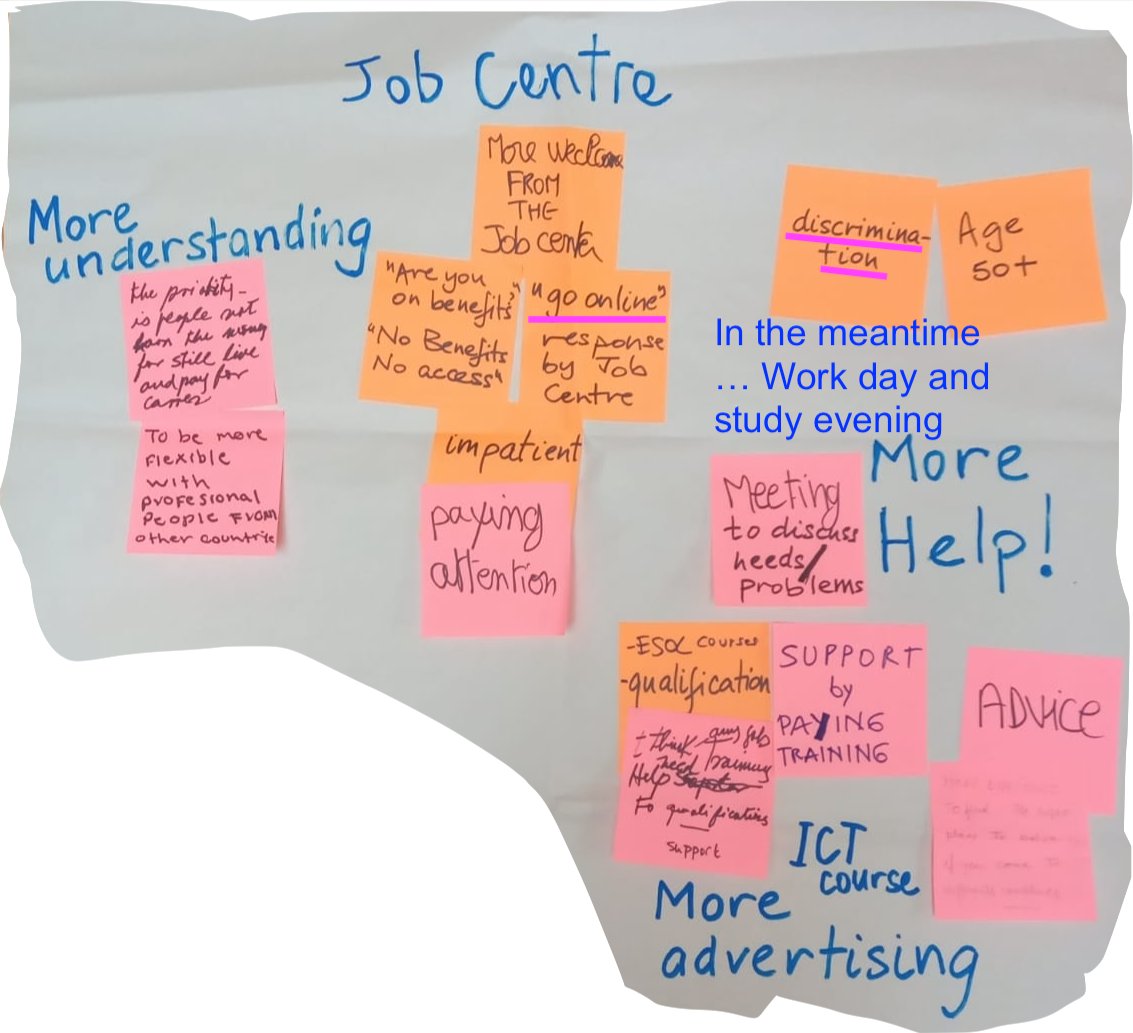 Job Centre
More Weclome
FROM
THE
Job center
More
understanding
the priority-
is people not
for still live
and pay for
To be more
Flexible
with
profesional
People From
other countrie
"Are you
on benefits?"
"No Benefits
No access"
"go online"
response
by Job
Centre
impatient
paying
attention
discrimina-
tion
Age
50+
In the meantime
... Work day and
study evening
More
Help!
Meeting
to discuss
needs/
problems
-ESOL courses
-qualification
I think any job
need training
Help
Fo qualifications
support
SUPPORT
by
PAYING
TRAINING
ADVICE
ICT
course
More
advertising